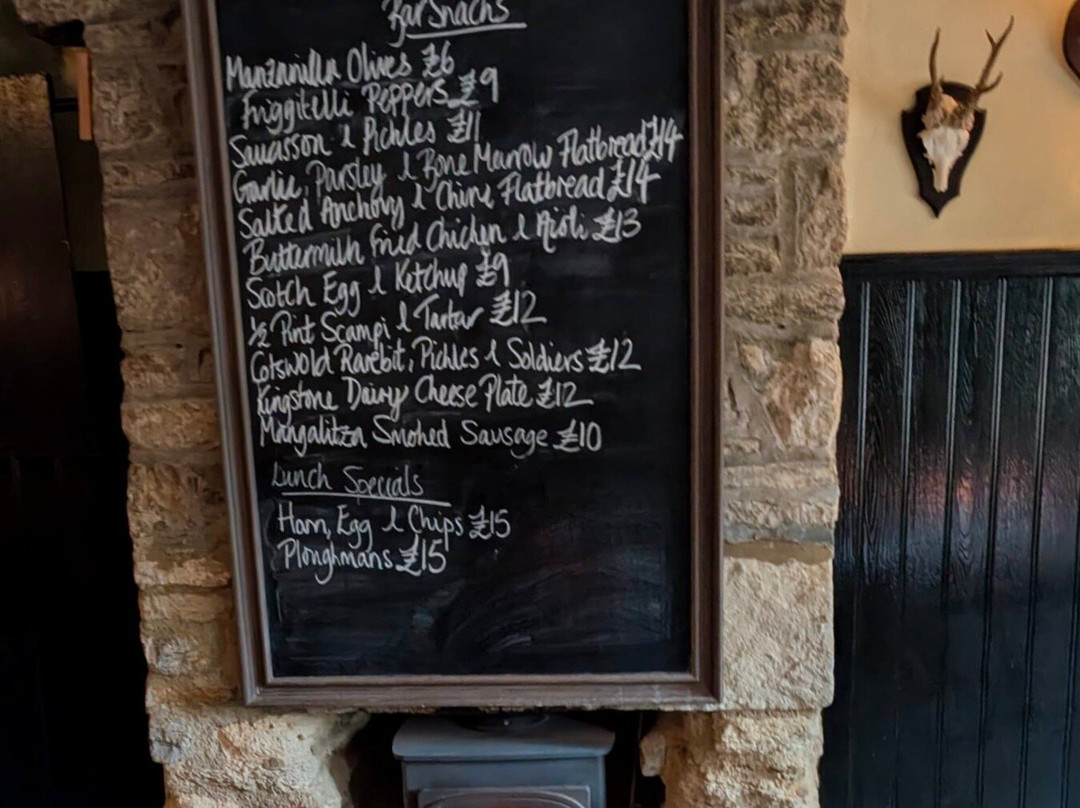 Bar Snacks
Manzanilla Olives £6
Friggitelli Peppers £9
Saucisson & Pickles £11
Garlic, Parsley & Bone Marrow Flatbread £14
Salted Anchovy & Chive Flatbread £14
Buttermilk Fried Chicken & Aioli £13
Scotch Egg & Ketchup £9
½ Pint Scampi & Tartar £12
Cotswold Rarebit, Pickles & Soldiers £12
Kingstone Dairy Cheese Plate £12
Mangalitza Smoked Sausage £10
Lunch Specials
Ham, Egg & Chips £15
Ploughmans £15